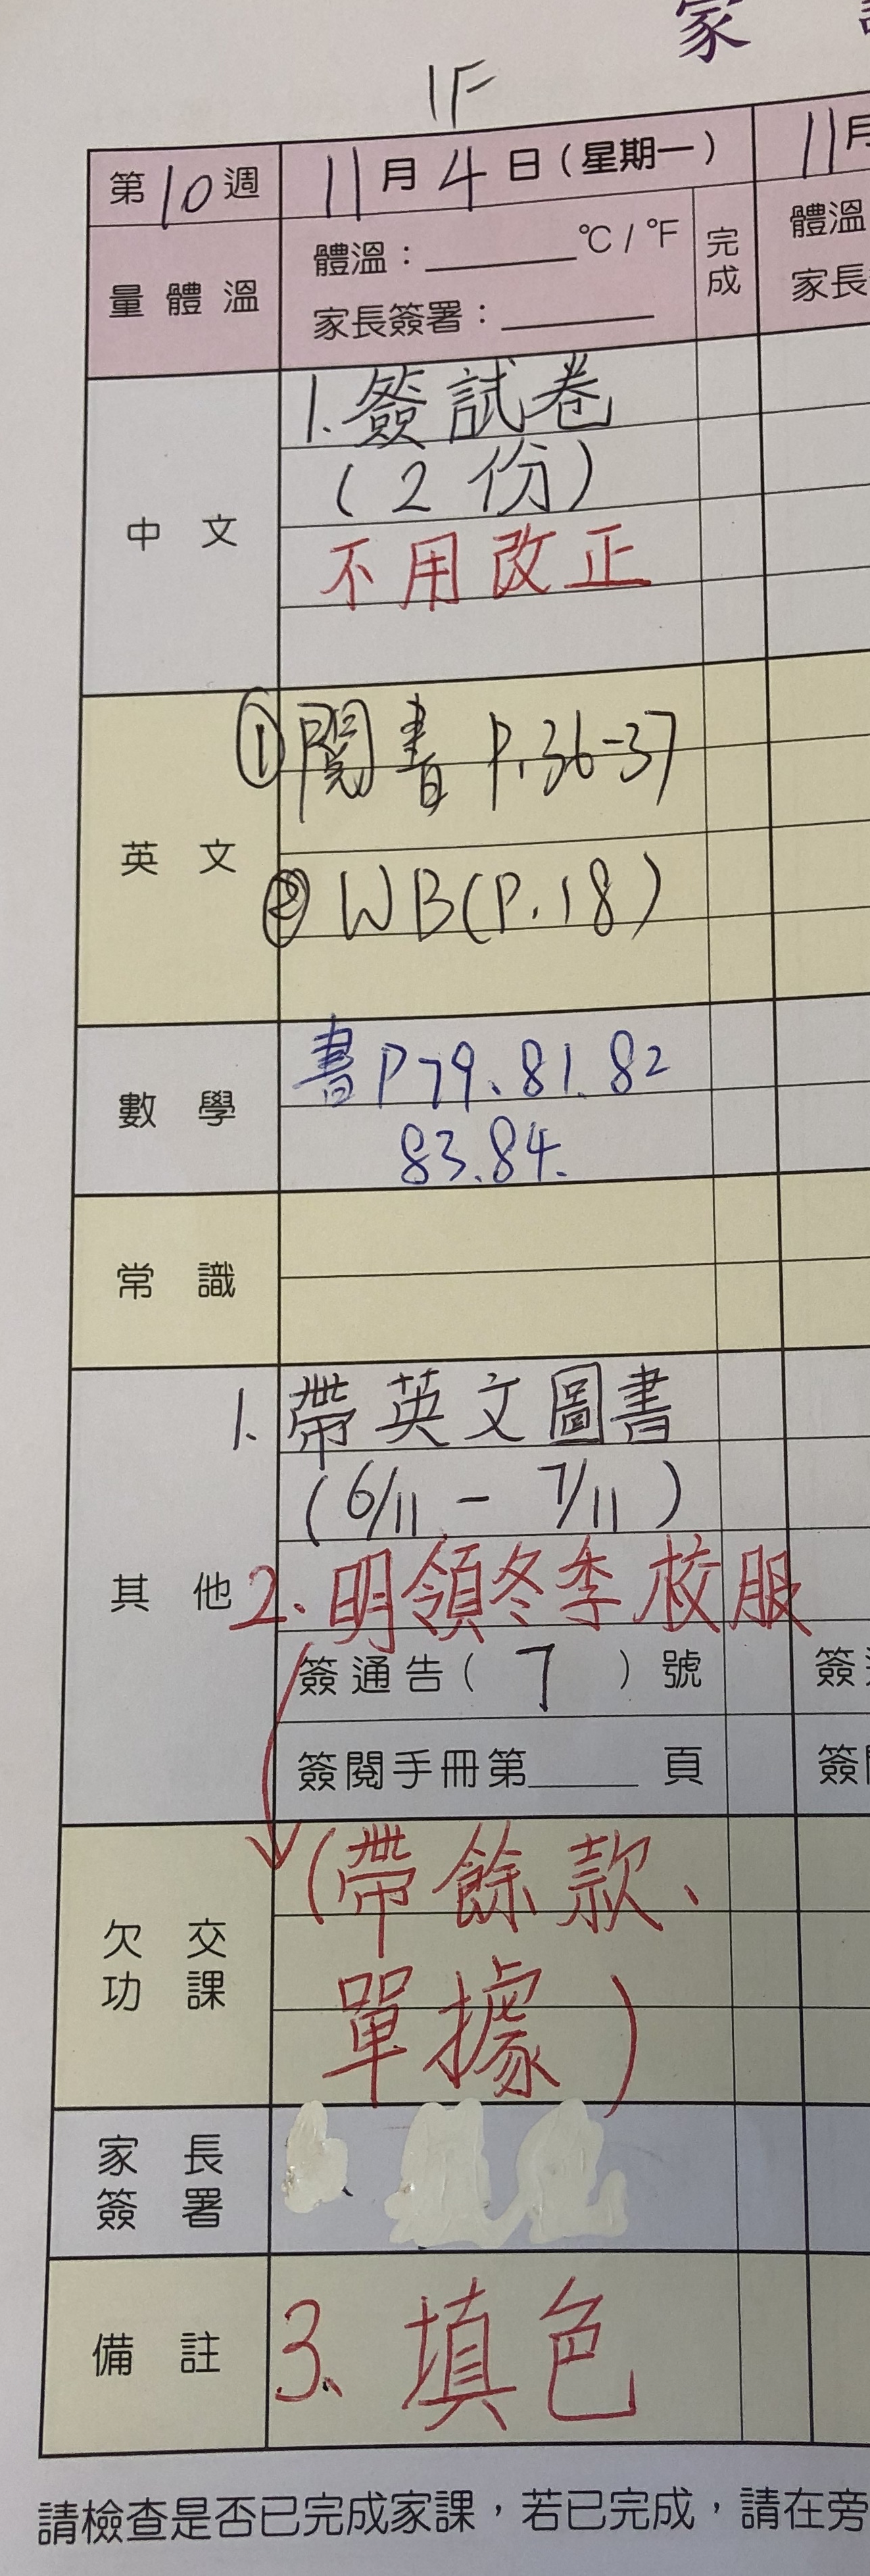 家
1F
第10週 11月4日(星期一) 11月
量體溫 體溫：______°C / °F 完成 體溫
家長簽署：______ 家長
中文 1.簽試卷
(2份)
不用改正
英文 ①閱書 P.36-37
② WB(P.18)
數學 書P79、81.82
83.84.
常識
其他 1.帶英文圖書
(6/11 - 7/11)
2.明領冬季校服
簽通告( 7 )號 簽
簽閱手冊第____頁 簽
欠交功課 (帶餘款、
單據)
家長簽署
備註 3、填色
請檢查是否已完成家課，若已完成，請在旁